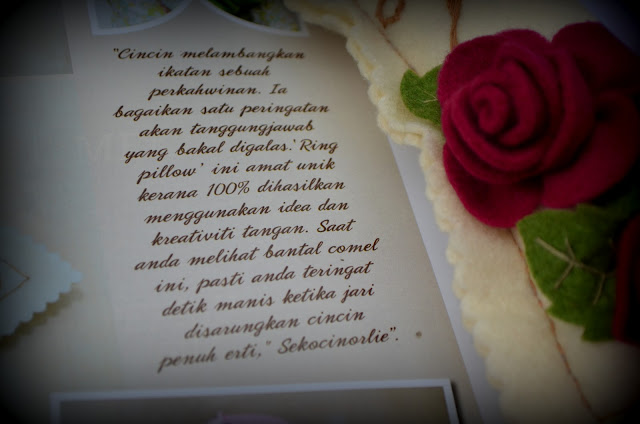 "Cincin melambangkan
ikatan sebuah
perkahwinan. Ia
bagaikan satu peringatan
akan tanggungjawab
yang bakal digalas.'Ring
pillow' ini amat unik
kerana 100% dihasilkan
menggunakan idea dan
kreativiti tangan. Saat
anda melihat bantal comel
ini, pasti anda teringat
detik manis ketika jari
disarungkan cincin
penuh erti," Sekocinorlie".